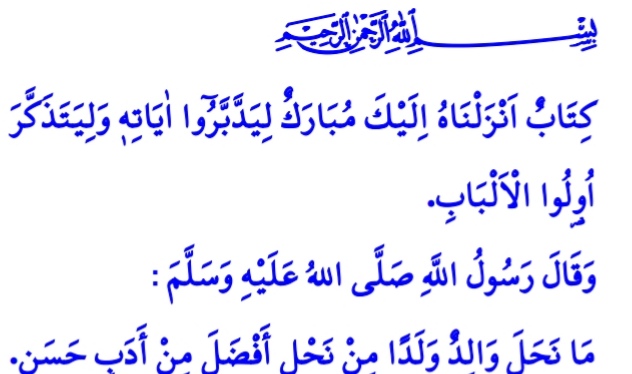 بِسْمِ اللهِ الرَّحْمٰنِ الرَّحِيمِ
كِتَابٌ اَنْزَلْنَاهُ اِلَيْكَ مُبَارَكٌ لِيَدَّبَّرُٓوا اٰيَاتِه۪ وَلِيَتَذَكَّرَ
اُو۬لُوا الْاَلْبَابِ.
وَقَالَ رَسُولُ اللَّهِ صَلَّى اللهُ عَلَيْهِ وَسَلَّمَ :
مَا نَحَلَ وَالِدٌ وَلَدًا مِنْ نَحْلٍ أَفْضَلَ مِنْ أَدَبٍ حَسَنٍ.